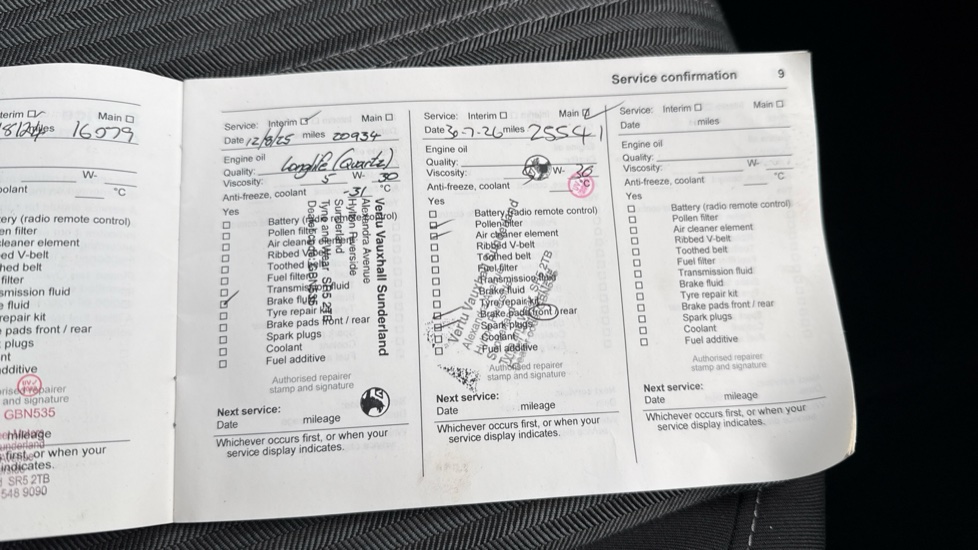 Service confirmation 9
terim Main
16079
W-
oolant °C
ery (radio remote control)
en filter
leaner element
ed V-belt
hed belt
filter
smission fluid
e fluid
repair kit
pads front / rear
plugs
nt
dditive
repairer
and signature
GBN535
mileage
first, or when your
indicates.
SR5 2TB
548 9090
Service: Interim Main
Date 12/8/25 miles 20934
Engine oil
Quality: Longlife (Quartz)
Viscosity: 5 W- 30
Anti-freeze, coolant -31 °C
Yes
Battery (radio remote control)
Pollen filter
Air cleaner element
Ribbed V-belt
Toothed belt
Fuel filter
Transmission fluid
Brake fluid
Tyre repair kit
Brake pads front / rear
Spark plugs
Coolant
Fuel additive
Vertu Vauxhall Sunderland
Alexandra Avenue
Hylton Riverside
Sunderland
Tyne and Wear SR5 2TB
Authorised repairer
stamp and signature
Next service:
Date mileage
Whichever occurs first, or when your
service display indicates.
Service: Interim Main
Date 30-7-26 miles 25541
Engine oil
Quality:
Viscosity: W- 30
Anti-freeze, coolant °C
Yes
Battery (radio remote control)
Pollen filter
Air cleaner element
Ribbed V-belt
Toothed belt
Fuel filter
Transmission fluid
Brake fluid
Tyre repair kit
Brake pads front / rear
Spark plugs
Coolant
Fuel additive
Authorised repairer
stamp and signature
Next service:
Date mileage
Whichever occurs first, or when your
service display indicates.
Service: Interim Main
Date miles
Engine oil
Quality:
Viscosity: W-
Anti-freeze, coolant °C
Yes
Battery (radio remote control)
Pollen filter
Air cleaner element
Ribbed V-belt
Toothed belt
Fuel filter
Transmission fluid
Brake fluid
Tyre repair kit
Brake pads front / rear
Spark plugs
Coolant
Fuel additive
Authorised repairer
stamp and signature
Next service:
Date mileage
Whichever occurs first, or when your
service display indicates.